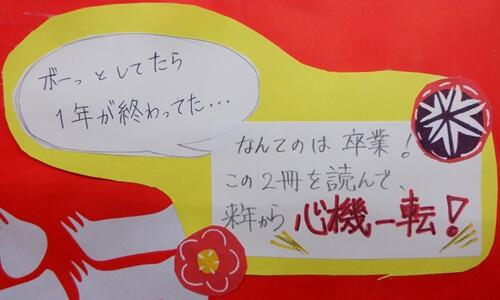 ボーっとしてたら
1年が終わってた…
なんてのは卒業!
この2冊を読んで、
来年から心機一転!